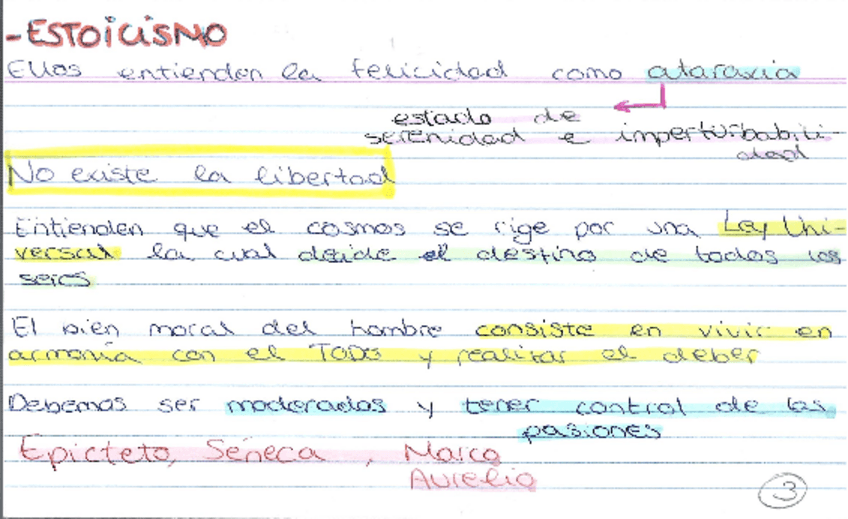 -ESTOICISMO
Ellos entienden la felicidad como ataraxia
estado de
serenidad e imperturbabili-
dad
No existe la libertad
Entienden que el cosmos se rige por una Ley Uni-
versal la cual decide el destino de todos los
seres
El bien moral del hombre consiste en vivir en
armonía con el TODO y realizar el deber
Debemos ser moderados y tener control de las
pasiones
Epicteto, Séneca, Marco
Aurelio
3